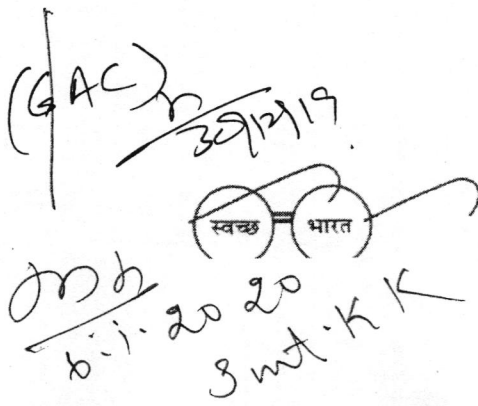 (GAC)
30/12/19
स्वच्छ भारत
6.1.2020
Smt. K K